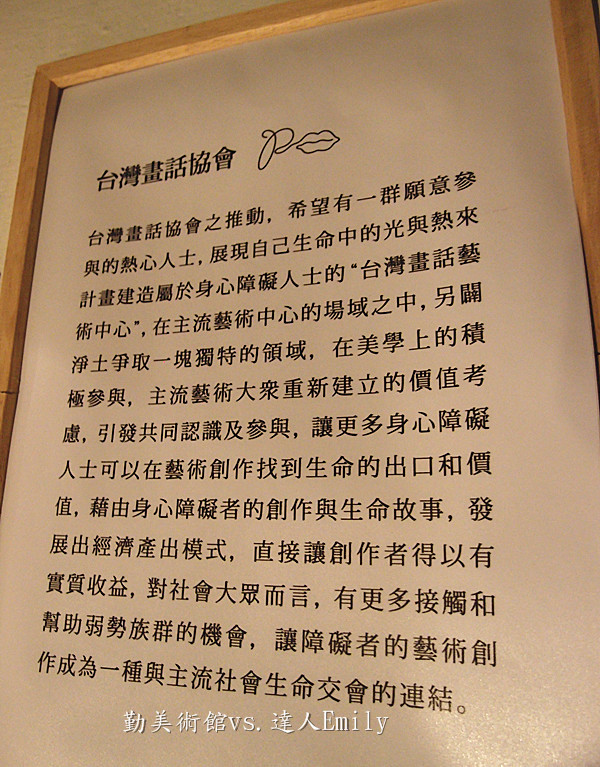 台灣畫話協會
台灣畫話協會之推動，希望有一群願意參
與的熱心人士，展現自己生命中的光與熱來
計畫建造屬於身心障礙人士的“台灣畫話藝
術中心”，在主流藝術中心的場域之中，另闢
淨土爭取一塊獨特的領域，在美學上的積
極參與，主流藝術大衆重新建立的價值考
慮，引發共同認識及參與，讓更多身心障礙
人士可以在藝術創作找到生命的出口和價
值，藉由身心障礙者的創作與生命故事，發
展出經濟產出模式，直接讓創作者得以有
實質收益，對社會大眾而言，有更多接觸和
幫助弱勢族群的機會，讓障礙者的藝術創
作成為一種與主流社會生命交會的連結。
勤美術館vs.達人Emily